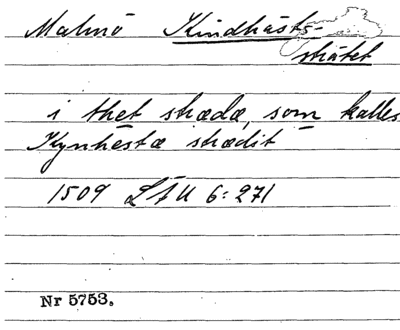 Malmö Kindhästs-
stråtet
i thet strædæ, som kalles
Kynhestæ strædit
1509 LÅU 6:271
Nr 5753.